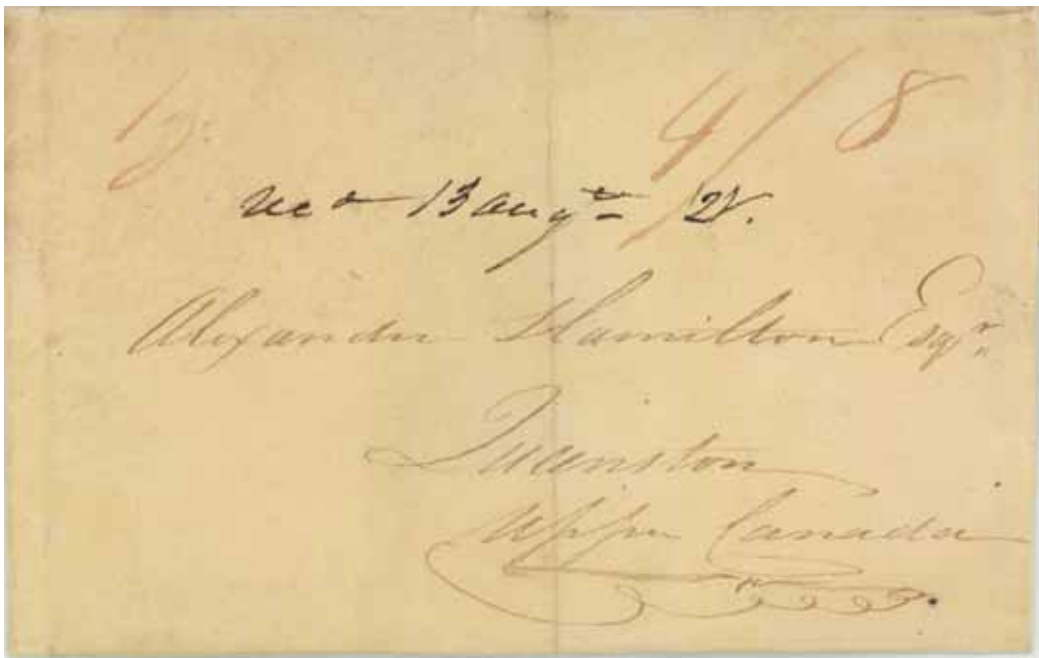 4/8
13 augt
Alexander Hamilton Esqr.
Queenston
Upper Canada